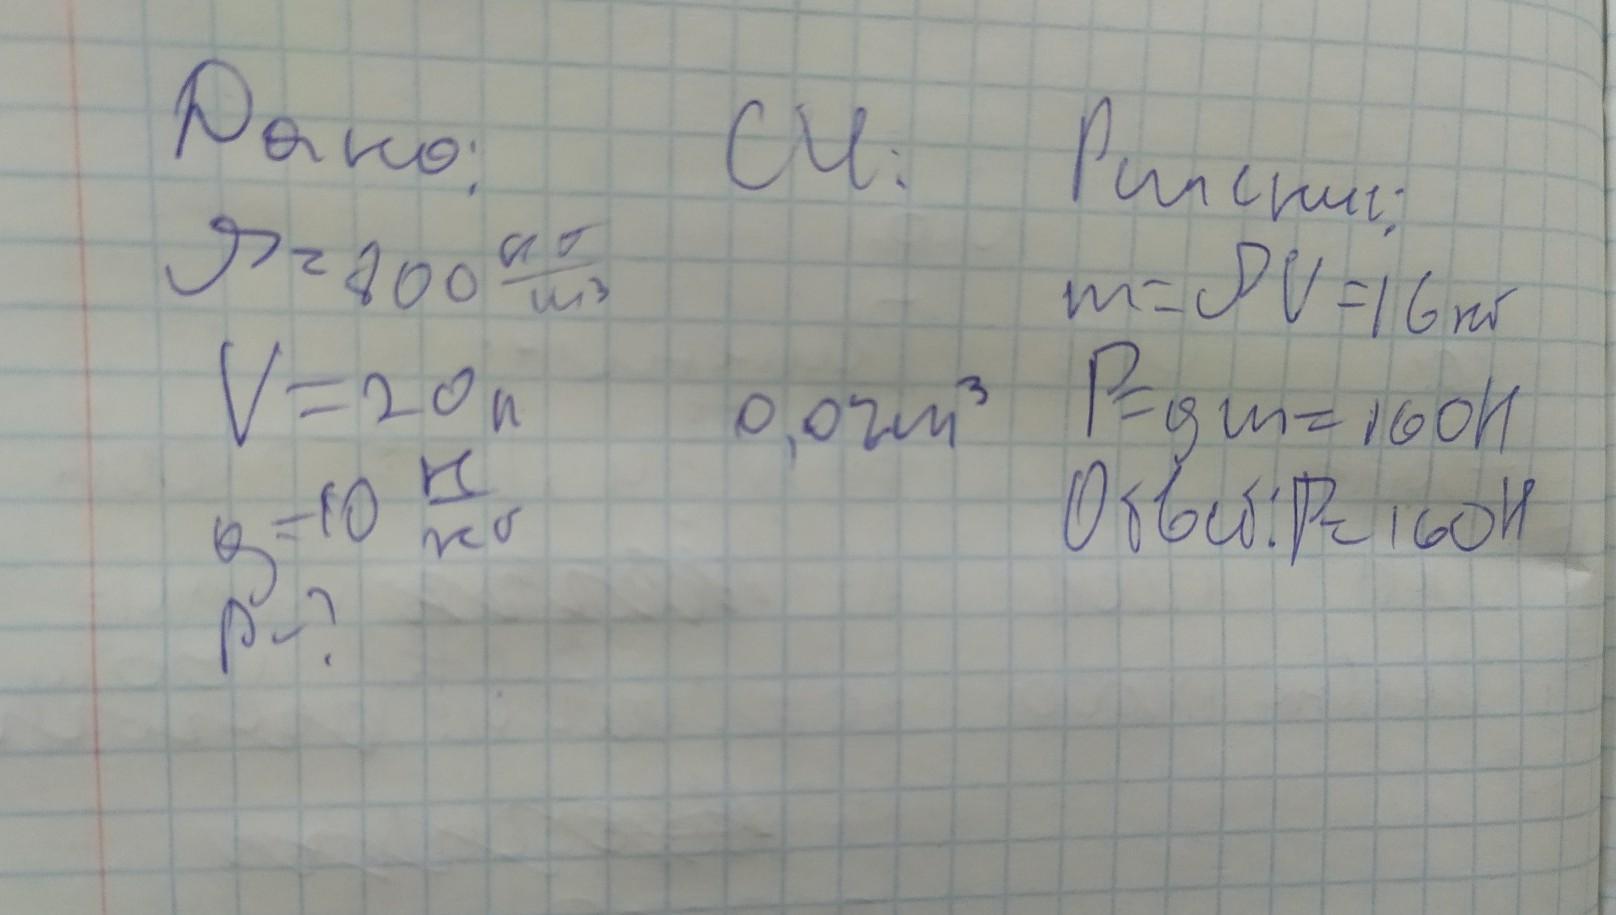 Дано:
ρ=800 кг/м³
V=20л
g=10 Н/кг
P-?
СИ:
0,02м³
Решение:
m=ρV=16кг
P=gm=160Н
Ответ: P=160Н